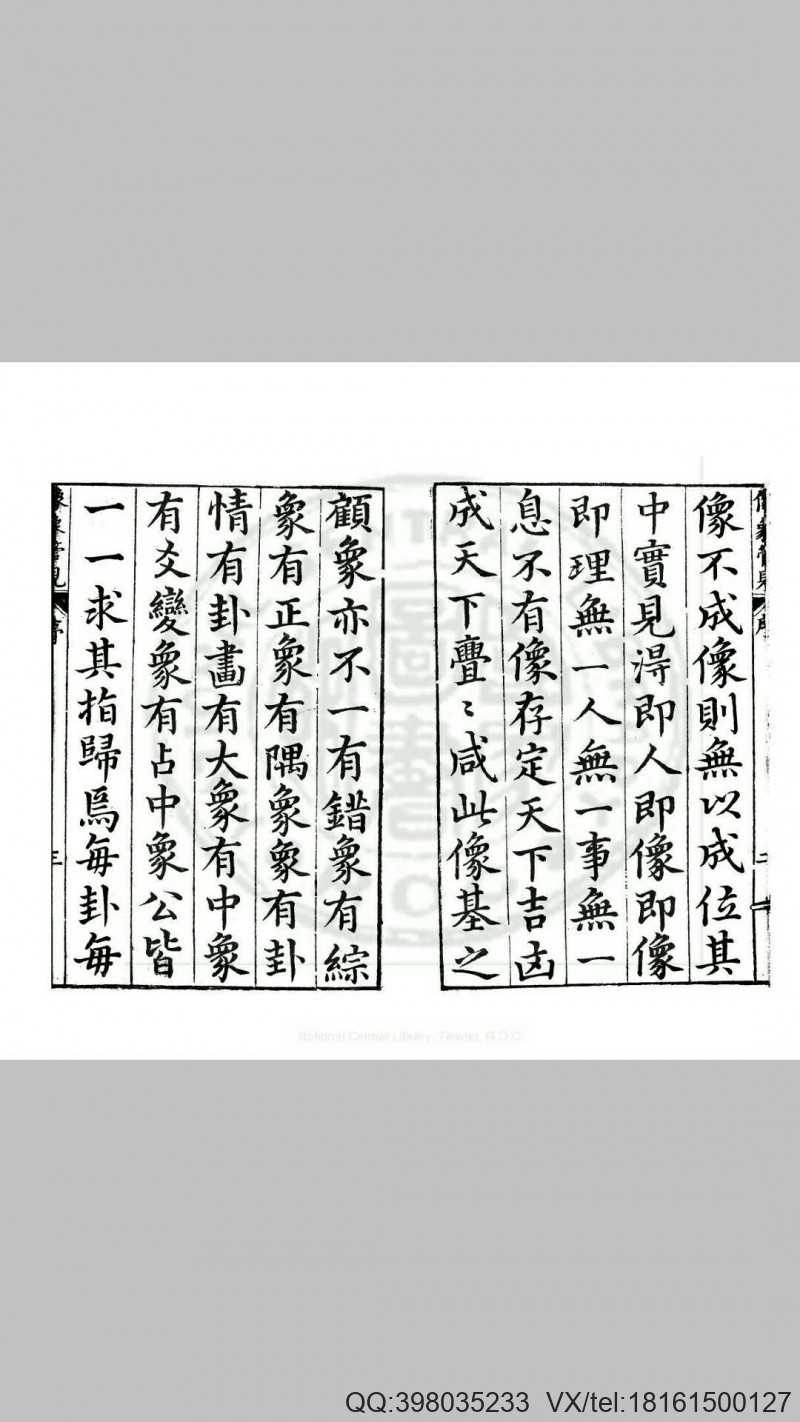 像象管見
序
二
像不成像則無以成位其
中實見淂即人即像即像
即理無一人無一事無一
息不有像存定天下吉凶
成天下亹〻咸此像基之
顧象亦不一有錯象有綜
象有正象有隅象象有卦
情有卦畫有大象有中象
有爻變象有占中象公皆
一一求其指歸焉每卦每
像象管見
序
三
National Central Library, Taiwan, R.O.C
QQ:398035233 VX/tel:18161500127